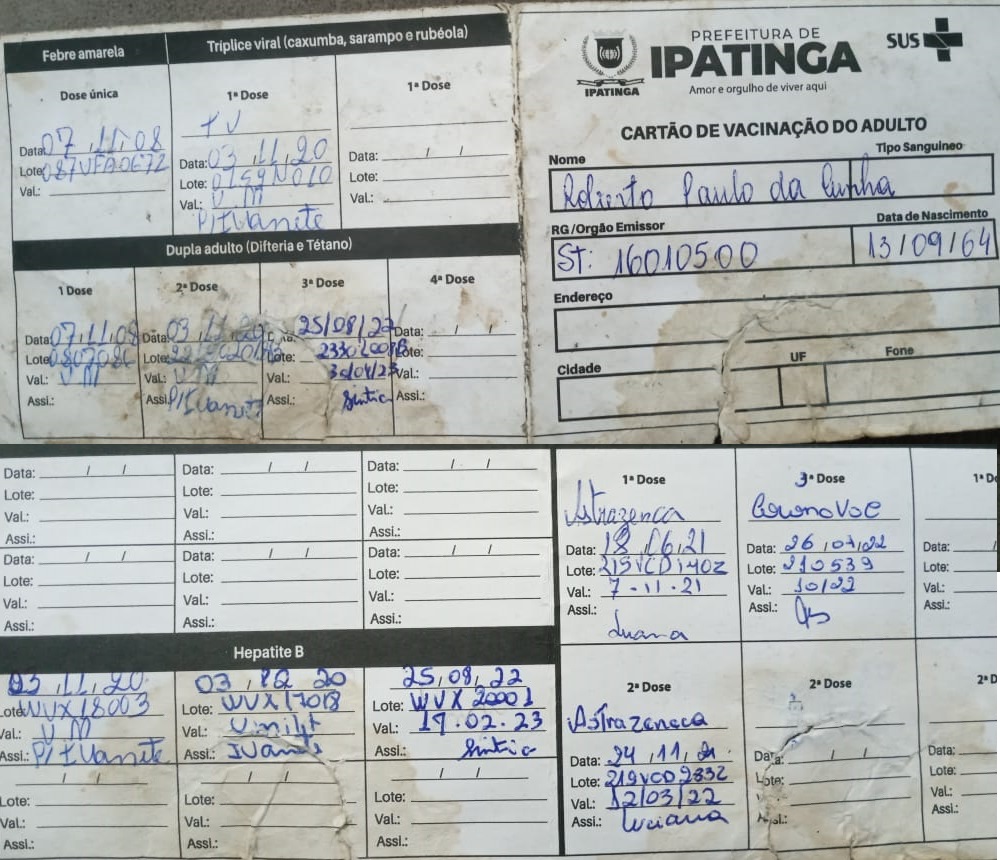 Febre amarela
Tríplice viral (caxumba, sarampo e rubéola)
Dose única
1ª Dose
1ª Dose
TV
Data: 07,11,08
Data: 03,11,20
Data: / /
Lote: 087VFA067Z
Lote: 0159N010
Lote:
Val.:
Val.: V.M
Val.:
P/Ivanete
Dupla adulto (Difteria e Tétano)
1 Dose
2ª Dose
3ª Dose
4ª Dose
Data: 07,11,08
Data: 03,11,20
25/08/22
Data: / /
Lote:
Lote:
Lote:
Lote:
Val.: V M
Val.: V M
Val.: 30/04/23
Val.:
Assi.:
Assi.: P/Ivanete
Assi.: Sintia
Assi.:
PREFEITURA DE
IPATINGA
Amor e orgulho de viver aqui
IPATINGA
SUS
CARTÃO DE VACINAÇÃO DO ADULTO
Nome
Tipo Sanguineo
Roberto Paulo da Cunha
RG/Orgão Emissor
Data de Nascimento
St: 16010500
13/09/64
Endereço
Cidade
UF
Fone
Data: / /
Data: / /
Data: / /
Lote:
Lote:
Lote:
Val.:
Val.:
Val.:
Assi.:
Assi.:
Assi.:
Data: / /
Data: / /
Data: / /
Lote:
Lote:
Lote:
Val.:
Val.:
Val.:
Assi.:
Assi.:
Assi.:
Hepatite B
03,11,20
03,12 20
25,08,22
Lote: WVX18003
Lote: WVX17018
Lote: WVX20001
Val.: V M
Val.:
Val.: 17.02.23
Assi.: P/Ivanete
Assi.: Ivanete
Assi.: Sintia
/ /
/ /
/ /
Lote:
Lote:
Lote:
Val.:
Val.:
Val.:
Assi.:
Assi.:
Assi.:
1ª Dose
3ª Dose
1ª D
Astrazenca
CoronaVac
Data: 18,06,21
Data: 26,01,22
Data:
Lote: 215VCD140Z
Lote: 210539
Lote:
Val.: 7-11-21
Val.: 10/22
Val.:
Assi.:
Assi.:
Assi.:
Luana
2ª Dose
2ª Dose
2ª D
AsTrazeneca
Data: 24,11,21
Data: / /
Data:
Lote: 219VCD283Z
Lote:
Lote:
Val.: 12/03/22
Val.:
Val.:
Assi.: Luciana
Assi.:
Assi.: